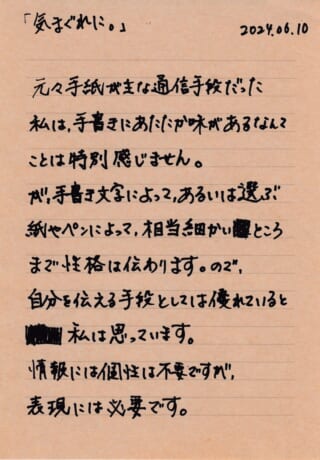 「気まぐれに。」 2024.06.10
元々手紙が主な通信手段だった
私は,手書きにあたたか味があるなんて
ことは特別感じません。
が,手書き文字によって,あるいは選ぶ
紙やペンによって,相当細かいところ
まで性格は伝わります。ので,
自分を伝える手段としては優れていると
私は思っています。
情報には個性は不要ですが,
表現には必要です。